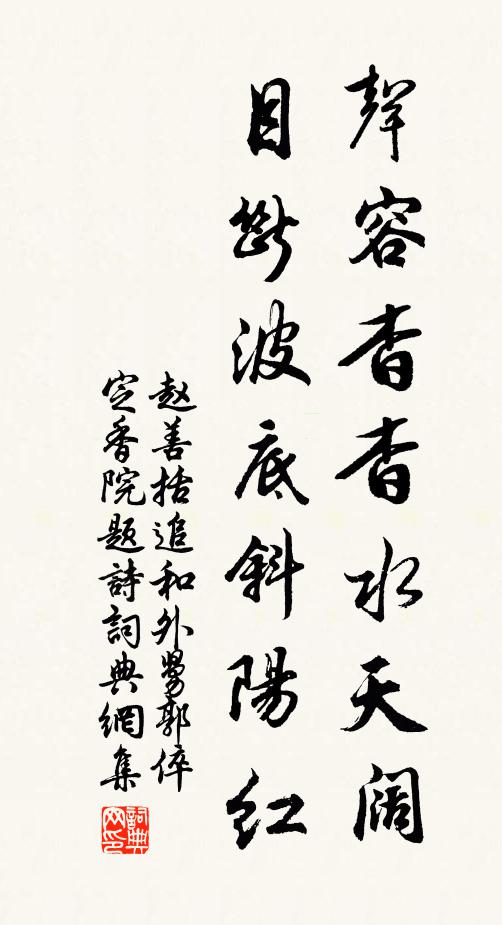 聲容杳杳水天阔
目斷波底斜陽红
赵善括追和外舅郭倅
定香院题詩詞典網集
詞典网印